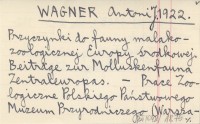 WAGNER Antoni J. 1922.
Przyczynki do fauny malako-
zoologicznej Europy środkowej.
Beiträge zur Molluskenfauna
Zentraleuropas. — Prace Zoo-
logiczne Polskiego Państwowego
Muzeum Przyrodniczego Warsza-